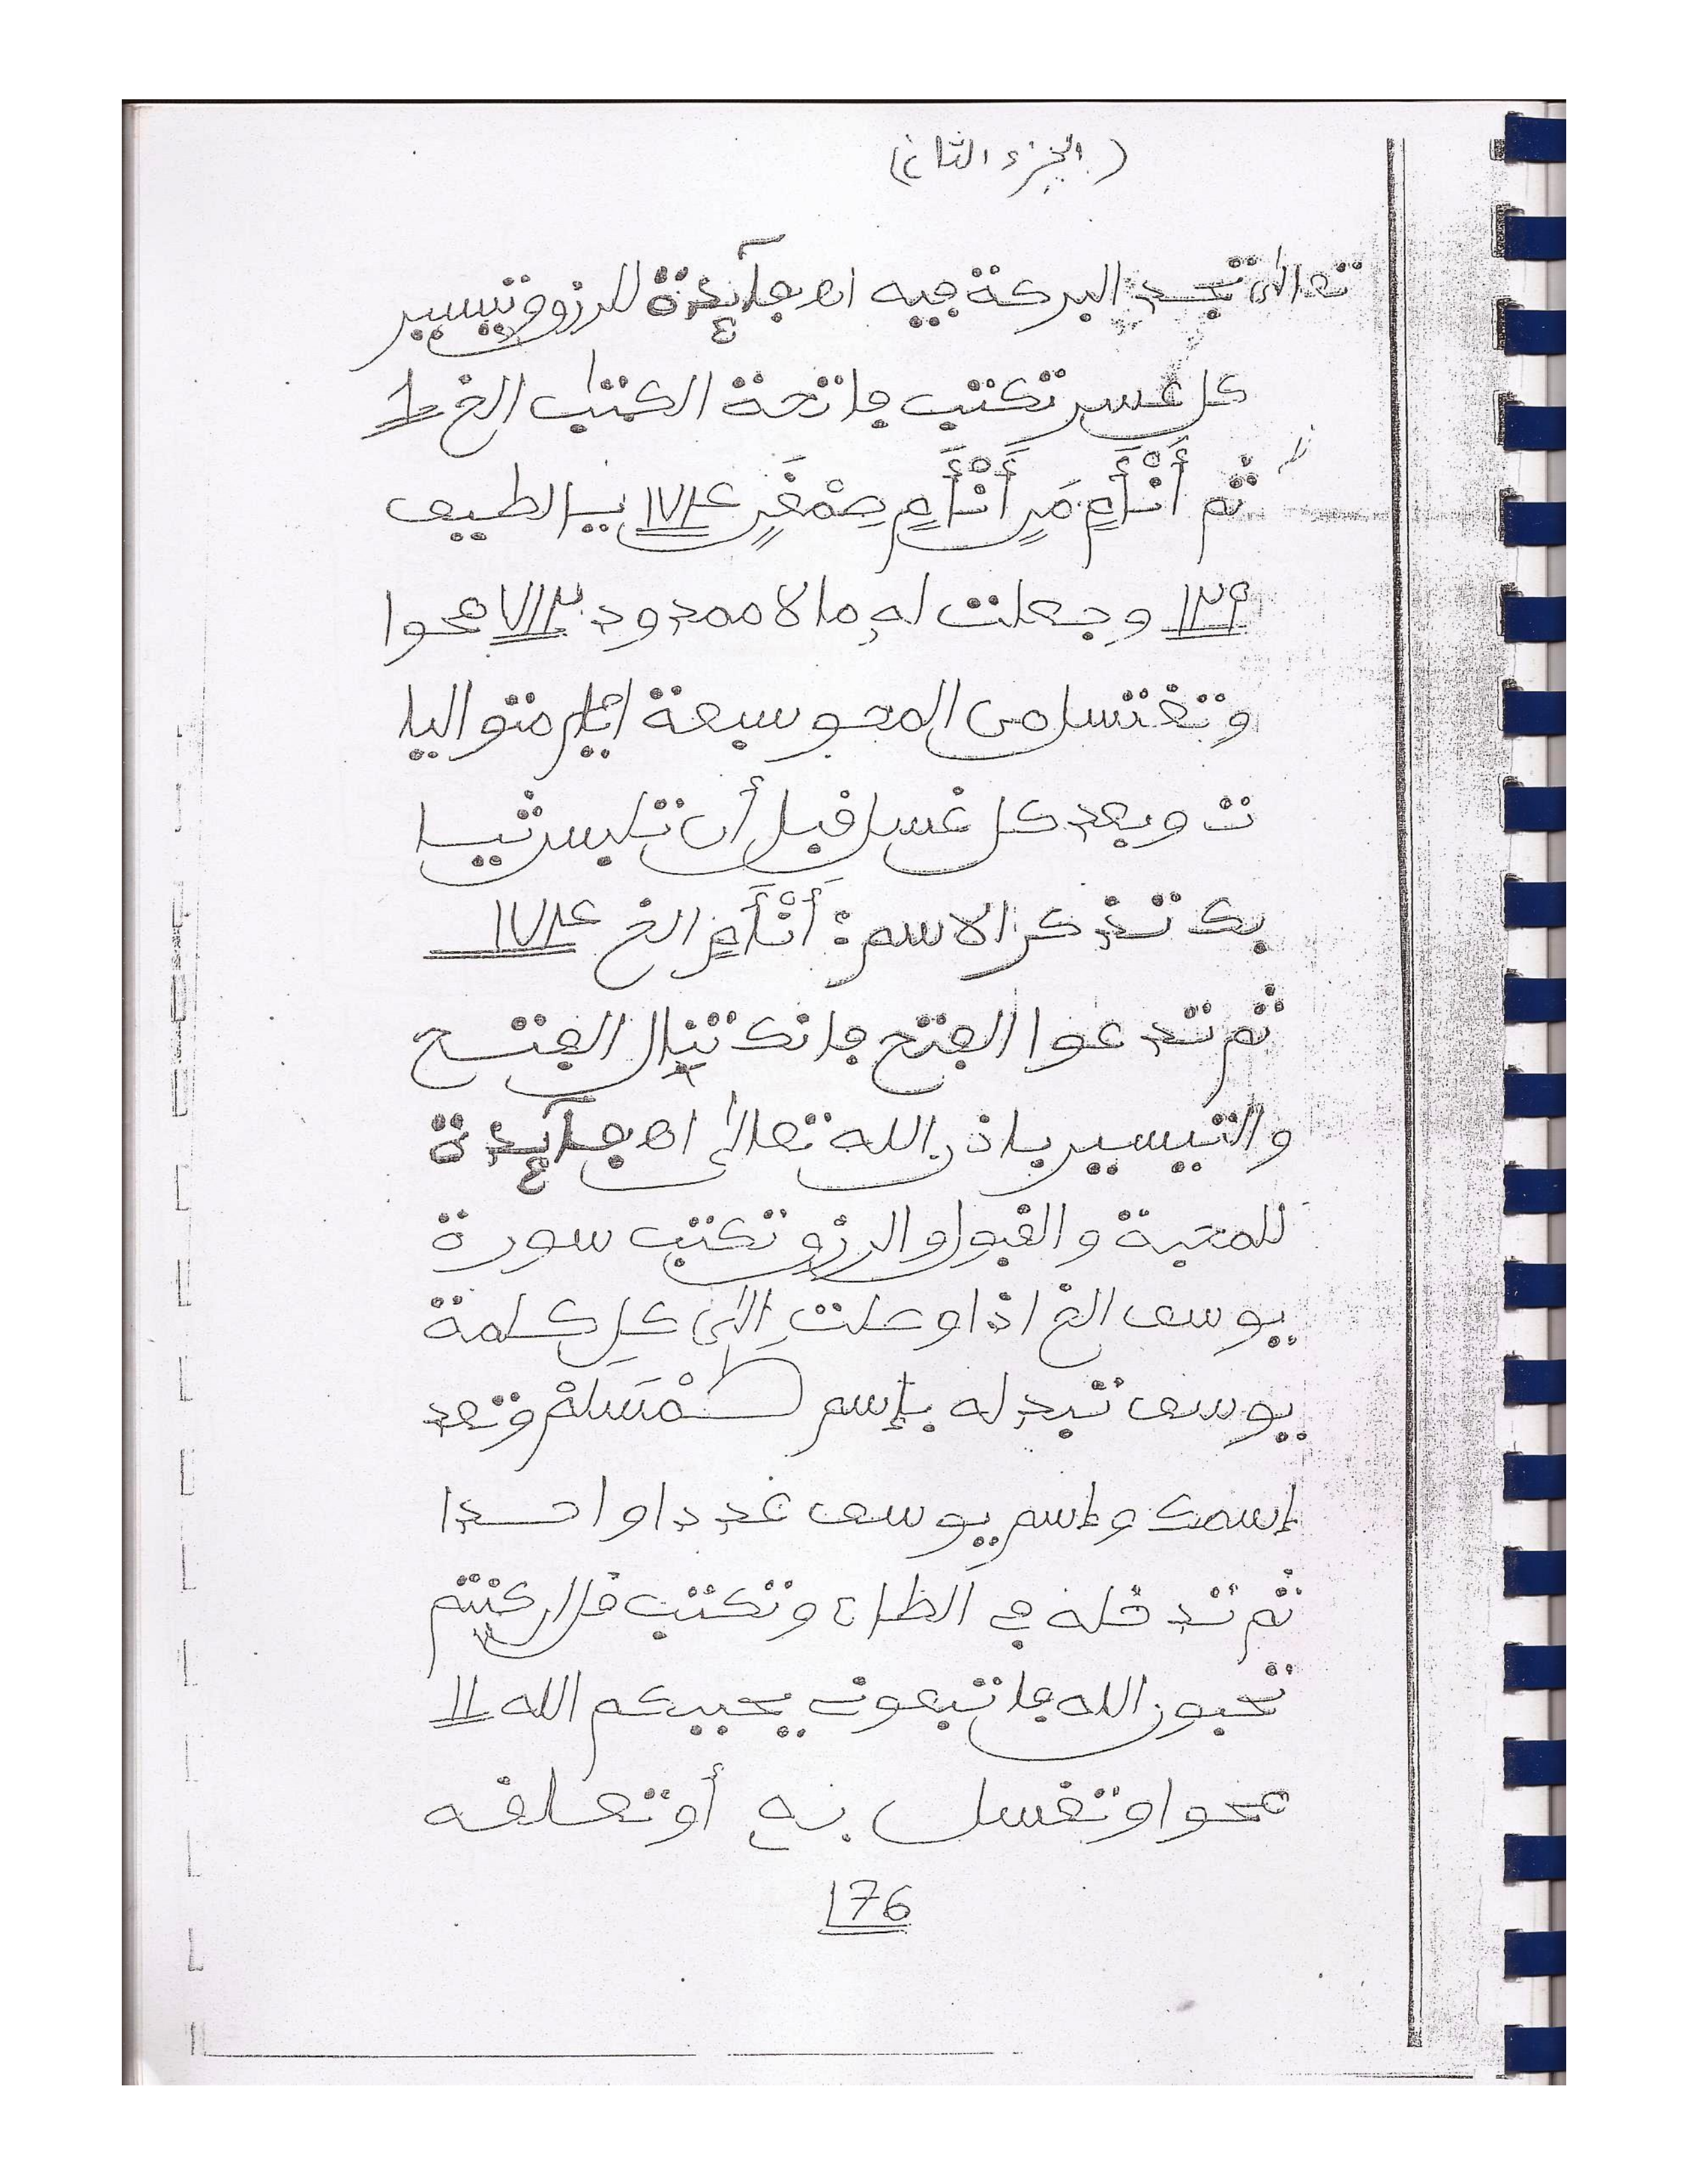 (الجزء الثاني)
تعالى تجد البركة فيه اه فآيدة للرزق وتيسير
كل عسر تكتب فاتحة الكتاب الخ ١
ثم أَنْأَمٍ مَرٍ أَنْأَمٍ صِمْغَرٍ ١٧٨٤ يا لطيف
١٢٩ وجعلت له مالا ممدودا ٧١٢ محوا
وتغتسل من المحو سبعة ايام متواليا
ت وبعد كل غسل قبل أن تلبس ثيا
بك تذكر الاسم: أَنْأَمٍ الخ ١٧٨٤
ثم تدعوا الفتح فانك تنال الفتح
والتيسير باذن الله تعالى اه فآيدة
للمحبة والقبول والرزق تكتب سورة
يوسف الخ اذا وصلت إلى كل كلمة
يوسف تبدله بإسم طَمْسَلْمْ وتعد
إسمك وإسم يوسف عددا واحدا
ثم تدخله في الظان وتكتب قل ان كنتم
تحبون الله فاتبعوني يحببكم الله ١١
محوا وتغسل به أو تعلقه
176